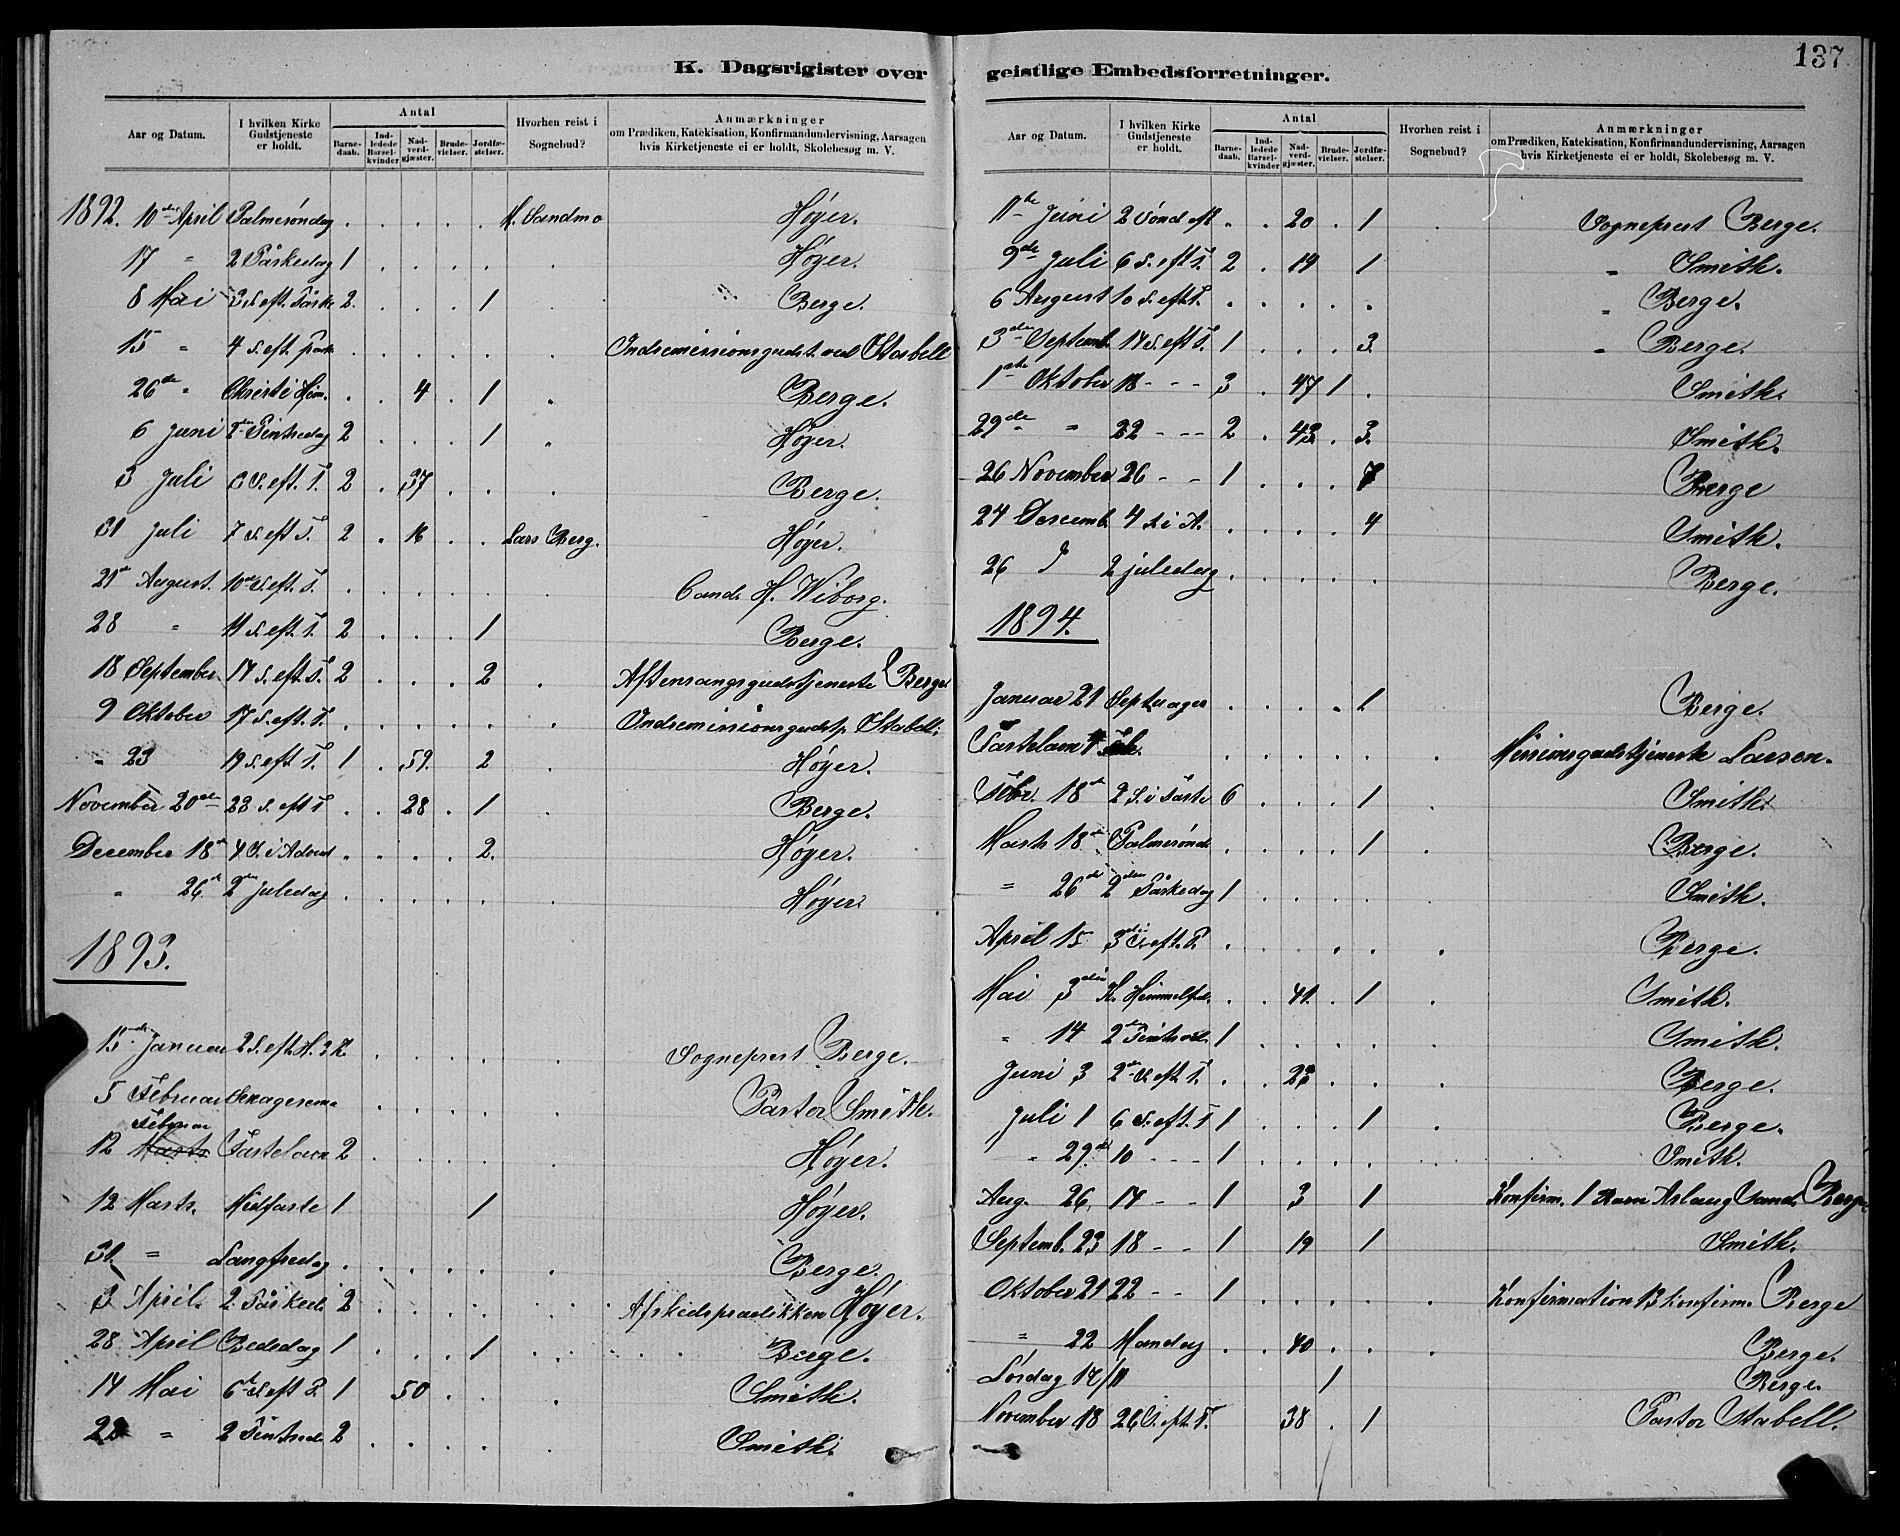 137
K. Dagsrigister over geistlige Embedsforretninger.
Aar og Datum. I hvilken Kirke Gudstjeneste er holdt. Antal Barnedaab. Indledede Barselkvinder Nadverdgjæster. Brudevielser. Jordfæstelser. Hvorhen reist i Sognebud? Anmærkninger om Prædiken, Katekisation, Konfirmandundervisning, Aarsagen hvis Kirketjeneste ei er holdt, Skolebesøg m. V.
1892. 10de April Palmesøndag . . . . . H. Sandmo Høyer.
17 " 2 Påskedag 1 . . . . . Høyer.
8 Mai 3 S. eft. Påske 2 . . . 1 Berge.
15 " 4 S. eft. Påske . . . . . . Indremissionsgudst. ved Stabell
26de " Christi Him. . . 4 . 1 . Berge.
6 Juni 2den Pintsedag 2 . . . 1 . Høyer.
3 Juli 3 S. eft. T. 2 . 37 . . . Berge.
31 Juli 7 S. eft. T. 2 . 16 . . Lars Berg. Høyer.
21de August. 10de S. eft. T. . . . . . . Cand. H. Wiborg.
28 " 11 S. eft. T. 2 . . . 1 Berge.
18 September 14 S. eft. T. 2 . . . 2 . Aftensangsgudstjeneste Berge
9 Oktober 17 S. eft. T. . . . . . . Indremissionsgudstj. Stabell.
" 23 19 S. eft. T. 1 . 59 . 2 . Høyer.
November 20de 23 S. eft. T . . 28 . 1 . Berge.
December 18de 4 S. i Advent . . . . 2. . Høyer.
" 26de 2den juledag . . . . . . Høyer.
1893.
15de Januar 2 S. eft. H. 3 K. . . . . . Sogneprest Berge.
5 Februar . . . . . Pastor Smith.
Februar
12 Marts Fastelavn 2 . . . . . Høyer.
12 Marts. Midfaste 1 1 Høyer.
31 " Langfredag . . . . . . Berge.
3 April. 2. Påsked. 2 . . . . . Afskedsprædikken Høyer.
28 April Bededag 1 . . . 1 . Berge.
14 Mai 6te S. eft P. 1 50 . . . Smith.
22 " 2 Pintsed. 2 . . . . . Smith.
Aar og Datum. I hvilken Kirke Gudstjeneste er holdt. Antal Barnedaab. Indledede Barselkvinder Nadverdgjæster. Brudevielser. Jordfæstelser. Hvorhen reist i Sognebud? Anmærkninger om Prædiken, Katekisation, Konfirmandundervisning, Aarsagen hvis Kirketjeneste ei er holdt, Skolebesøg m. V.
11te Juni 2 Sønd eft . . 20 . 1 . Sogneprest Berge.
9de Juli 6 S. eft. T. 2 . 19 1 " Smith.
6 August 10 S. eft. T. . . . . . " Berge.
3die Septemb. 14 S. eft T. 1 . . . 3. " Berge.
1ste Oktober 18 - - - 3 . 47 1 . Smith.
29de " 22 - - - 2 . 43 . 3. Smith.
26 November 26 - - 1 . . . 7 Berge
24 Decemb. 4 S. i A. . . . . 4 Smith.
26 2 juledag . . . . . Berge.
1894.
Januar 21 Septuages . . . . 1 Berge.
Fastelavn . . . . . . Missionsgudstjeneste Larsen.
Febr. 18de 2 S. i Faste 6 . . . 1 Smith.
Marts 18de Palmesønd. . . . . 1 . Berge.
" 26de 2den Påskedag 1 . . . . . Smith.
April 15 3die S. eft. P. . . . . . . Berge.
Mai 3die K. Himmelfd. . . 41. . 1 . Smith.
" 14 2den Pintsed. 1 . . . . . Smith.
Juni 3 2den S. eft. T. . . 23 . . . Berge.
Juli 1 6 S. eft. T 1 . . . 1 . Berge.
" 29de 10 - - - 1 . . . . . Smith.
Aug. 26. 14 - - 1 3 1 Konfirm. 1 Barn Aslaug Sand. Berge
Septemb. 23 18 - - 1 19 1 Smith.
Oktober 21 22 - - 1 . . . . . Konfirmation 13 Konfirm. Berge
" 22 Mandag . . 40 . . . Berge.
Lørdag 1 Berge.
November 18 26 S. eft. T. 38 . 1 Pastor Stabell.